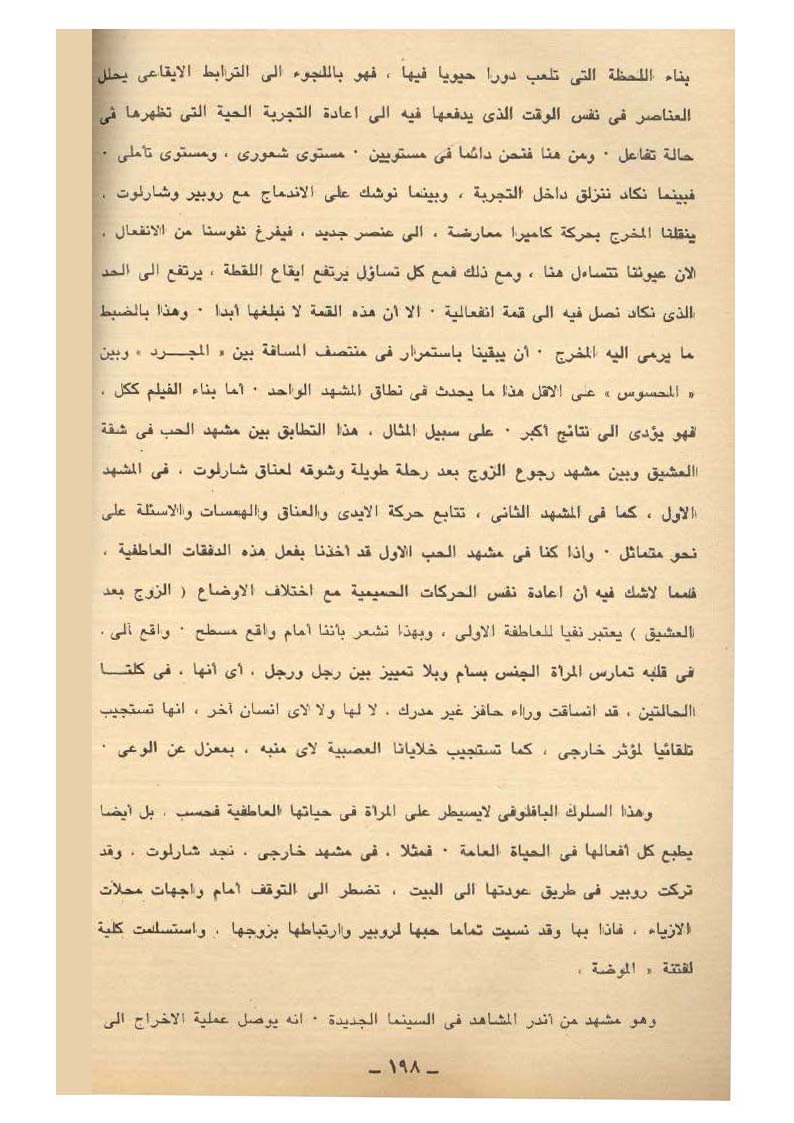 بناء اللحظة التى تلعب دورا حيويا فيها ، فهو باللجوء الى الترابط الايقاعى يحلل
العناصر فى نفس الوقت الذى يدفعها فيه الى اعادة التجربة الحية التى تظهرها فى
حالة تفاعل ٠ ومن هنا فنحن دائما فى مستويين ٠ مستوى شعورى ، ومستوى تأملى ٠
فبينما نكاد ننزلق داخل التجربة ، وبينما نوشك على الاندماج مع روبير وشارلوت ،
ينقلنا المخرج بحركة كاميرا معارضة ، الى عنصر جديد ، فيفرغ نفوسنا من الانفعال ،
الان عيوننا تتساءل هنا ، ومع ذلك فمع كل تساؤل يرتفع ايقاع اللقطة ، يرتفع الى الحد
الذى نكاد نصل فيه الى قمة انفعالية ٠ الا أن هذه القمة لا نبلغها أبدا ٠ وهذا بالضبط
ما يرمى اليه المخرج ٠ أن يبقينا باستمرار فى منتصف المسافة بين « المجـــرد » وبين
« المحسوس » على الاقل هذا ما يحدث فى نطاق المشهد الواحد ٠ أما بناء الفيلم ككل ،
فهو يؤدى الى نتائج أكبر ٠ على سبيل المثال ، هذا التطابق بين مشهد الحب فى شقة
العشيق وبين مشهد رجوع الزوج بعد رحلة طويلة وشوقه لعناق شارلوت ، فى المشهد
الاول ، كما فى المشهد الثانى ، تتابع حركة الايدى والعناق والهمسات والاسئلة على
نحو متماثل ٠ واذا كنا فى مشهد الحب الاول قد أخذنا بفعل هذه الدفقات العاطفية ،
فمما لاشك فيه أن اعادة نفس الحركات الحميمية مع اختلاف الاوضاع ( الزوج بعد
العشيق ) يعتبر نفيا للعاطفة الاولى ، وبهذا نشعر بأننا أمام واقع مسطح ٠ واقع آلى ،
فى قلبه تمارس المرأة الجنس بسأم وبلا تمييز بين رجل ورجل ، أى أنها ، فى كلتـــا
الحالتين ، قد انساقت وراء حافز غير مدرك ، لا لها ولا لاى انسان آخر ، انها تستجيب
تلقائيا لمؤثر خارجى ، كما تستجيب خلايانا العصبية لاى منبه ، بمعزل عن الوعى ٠
وهذا السلوك البافلوفى لايسيطر على المرأة فى حياتها العاطفية فحسب ، بل أيضا
يطبع كل أفعالها فى الحياة العامة ٠ فمثلا ، فى مشهد خارجى ، نجد شارلوت ، وقد
تركت روبير فى طريق عودتها الى البيت ، تضطر الى التوقف أمام واجهات محلات
الازياء ، فاذا بها وقد نسيت تماما حبها لروبير وارتباطها بزوجها ، واستسلمت كلية
لفتنة « الموضة ،
وهو مشهد من أندر المشاهد فى السينما الجديدة ٠ انه يوصل عملية الاخراج الى
— ١٩٨ —